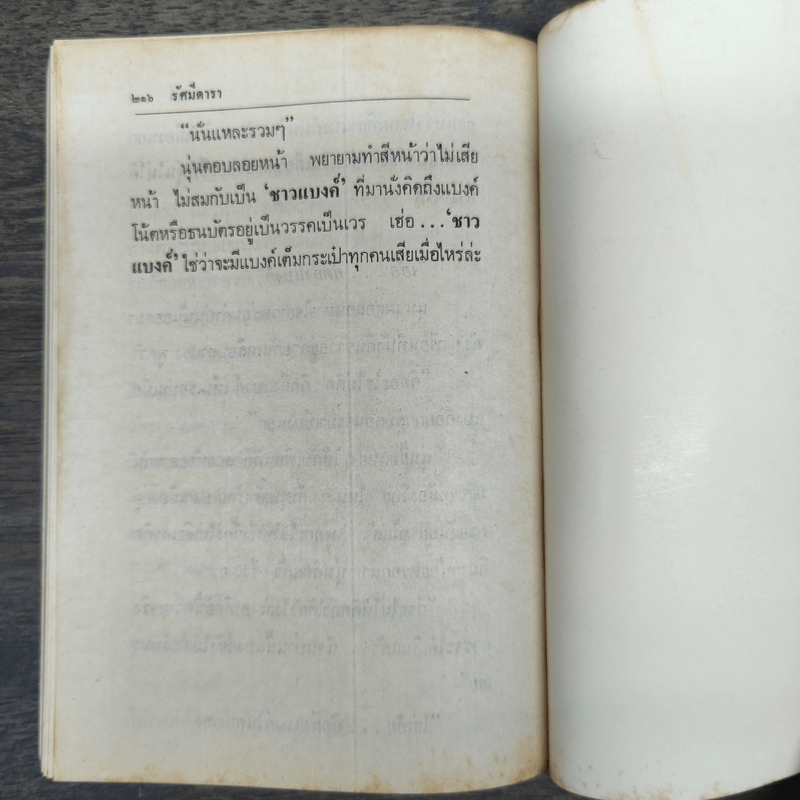 ๒๑๖ รัศมีดารา
“นั่นแหละรวมๆ”
นุ่นตอบลอยหน้า พยายามทำสีหน้าว่าไม่เสีย
หน้า ไม่สมกับเป็น ‘ชาวแบงค์’ ที่มานั่งคิดถึงแบงค์
โน้ตหรือธนบัตรอยู่เป็นวรรคเป็นเวร เฮ่อ...‘ชาว
แบงค์’ ใช่ว่าจะมีแบงค์เต็มกระเป๋าทุกคนเสียเมื่อไหร่ล่ะ